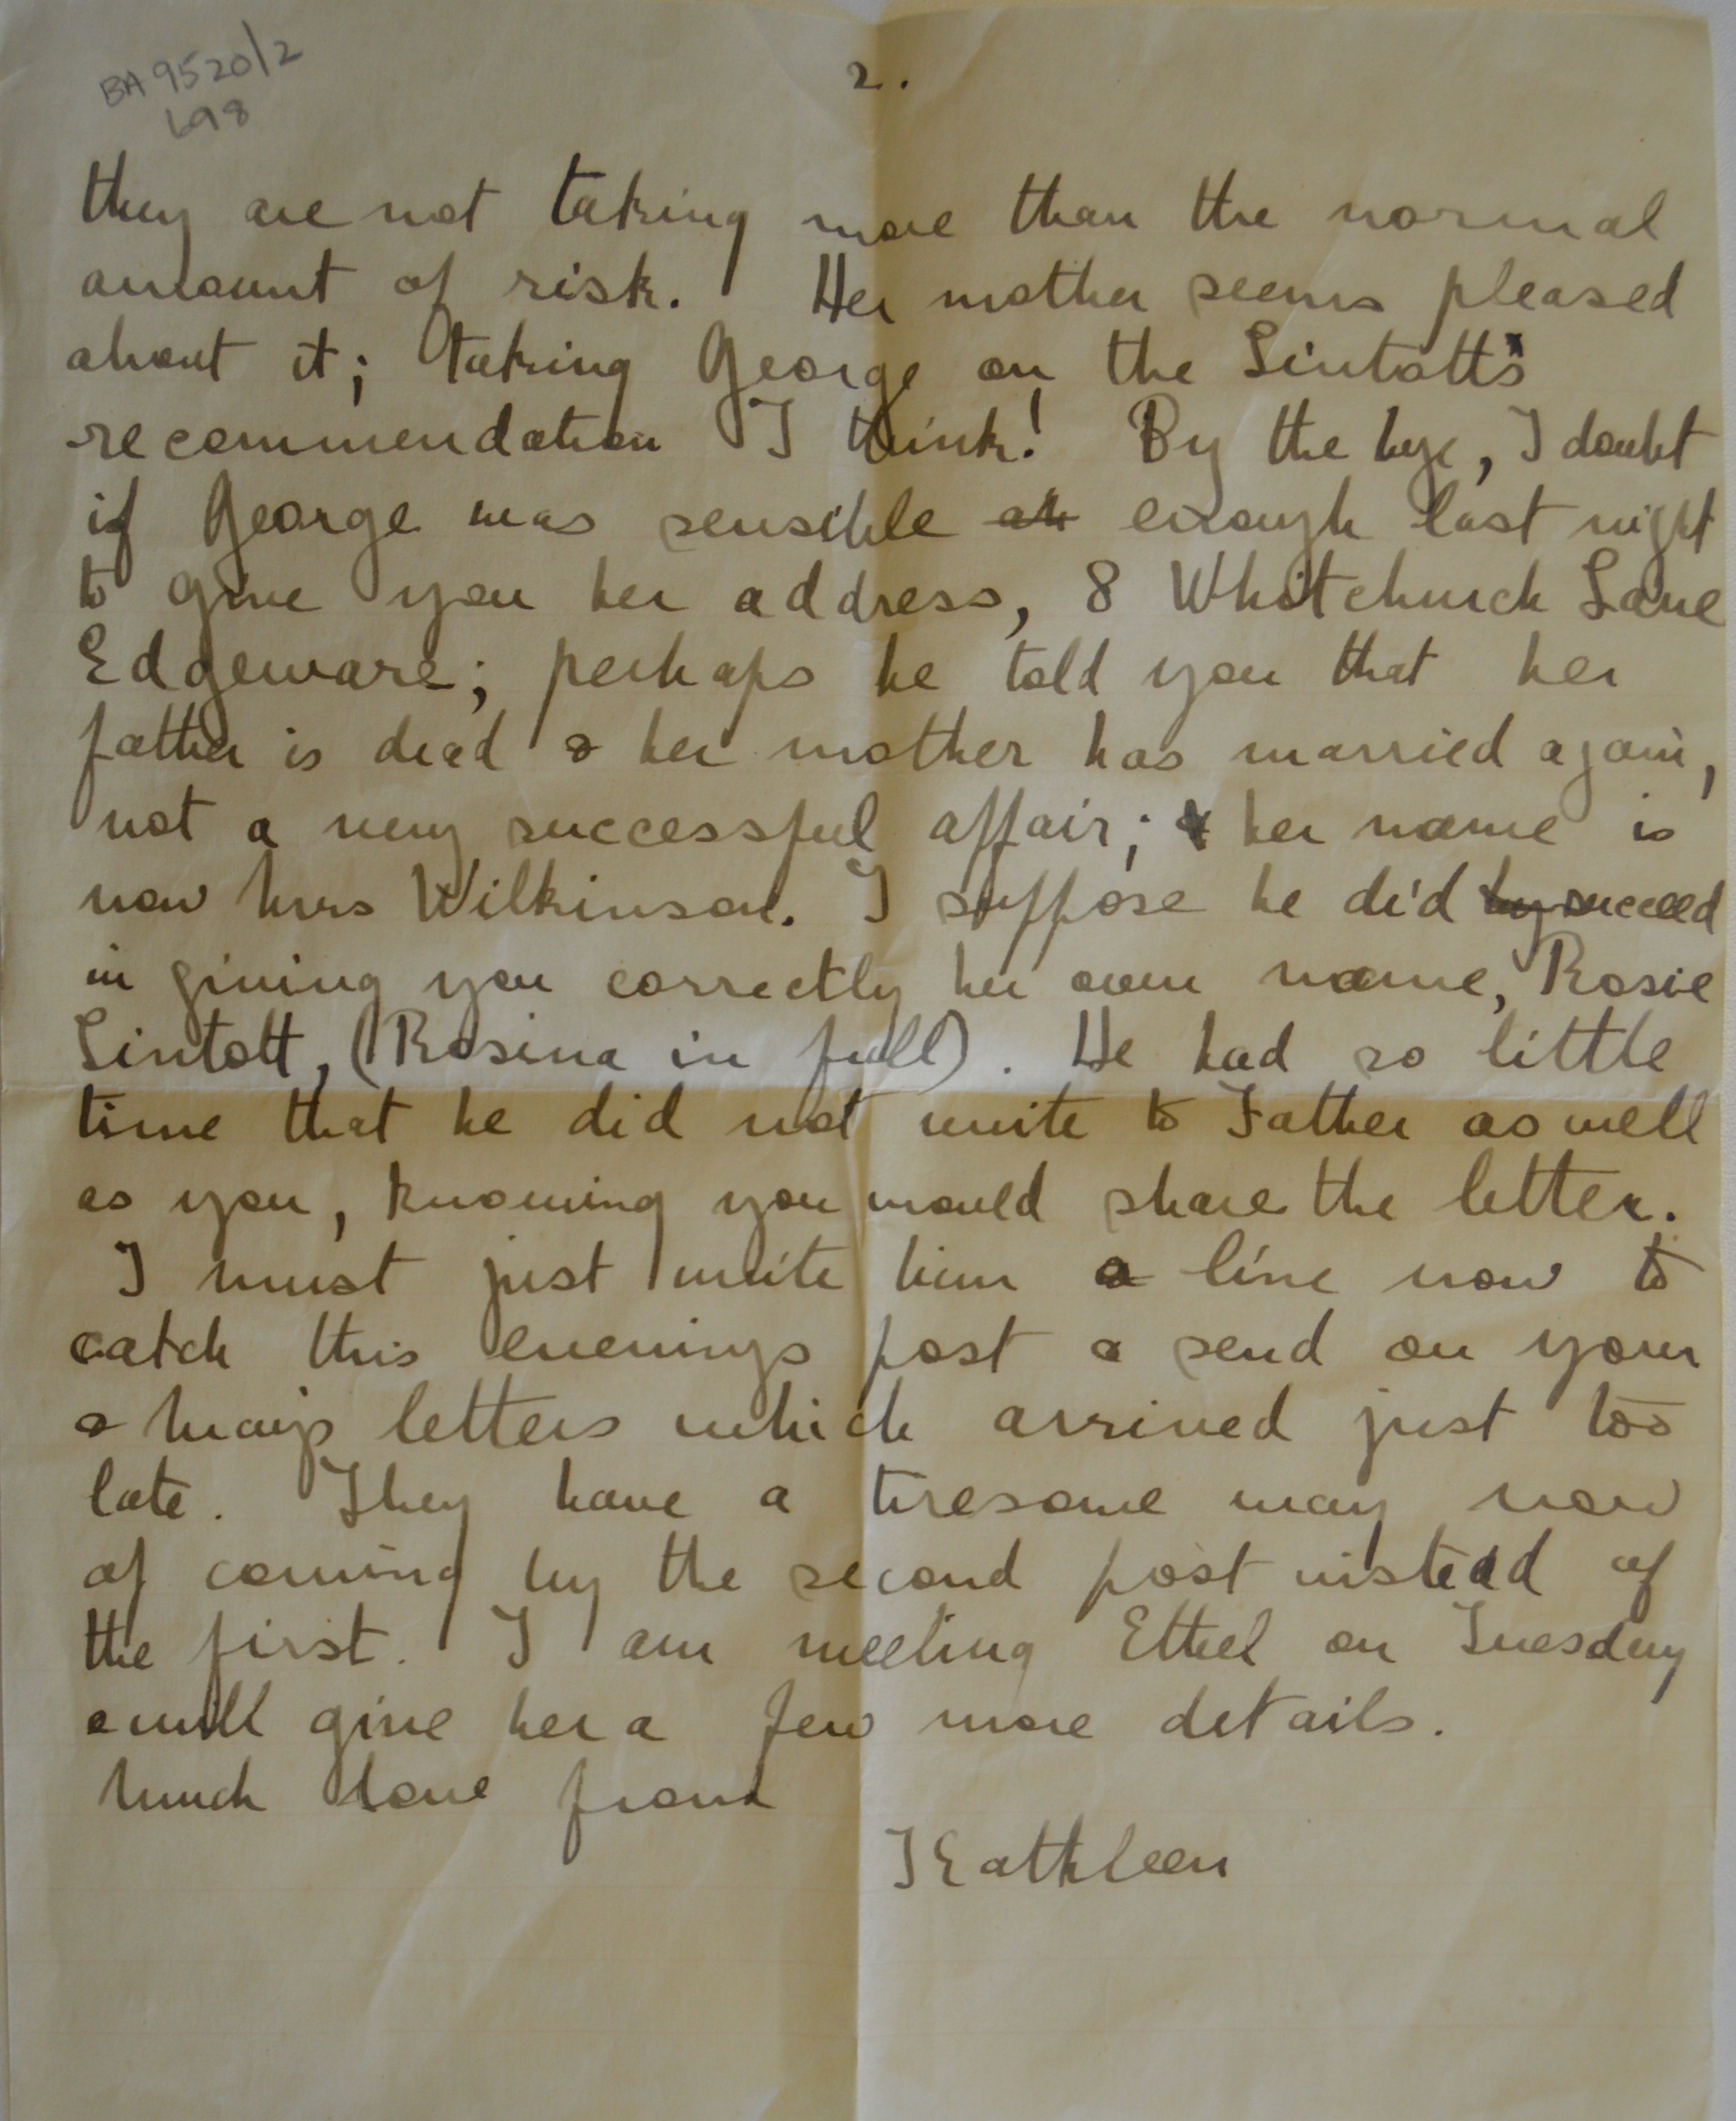 BA 9520/2
698
2.
they are not taking more than the normal
amount of risk. Her mother seems pleased
about it; taking George on the Sintott's
recommendation I think! By the bye, I doubt
if George was sensible enough last night
to give you her address, 8 Whitchurch Lane
Edgeware; perhaps he told you that her
father is dead & her mother has married again,
not a very successful affair; & her name is
now Mrs Wilkinson. I suppose he did succeed
in giving you correctly her own name, Rosie
Sintott, (Rosina in full). He had so little
time that he did not write to Father as well
as you, knowing you would share the letter.
I must just write him a line now to
catch this evenings post & send on your
& Maijs letters which arrived just too
late. They have a tiresome way now
of coming by the second post instead of
the first. I am meeting Ethel on Tuesday
& will give her a few more details.
Much love from
Kathleen